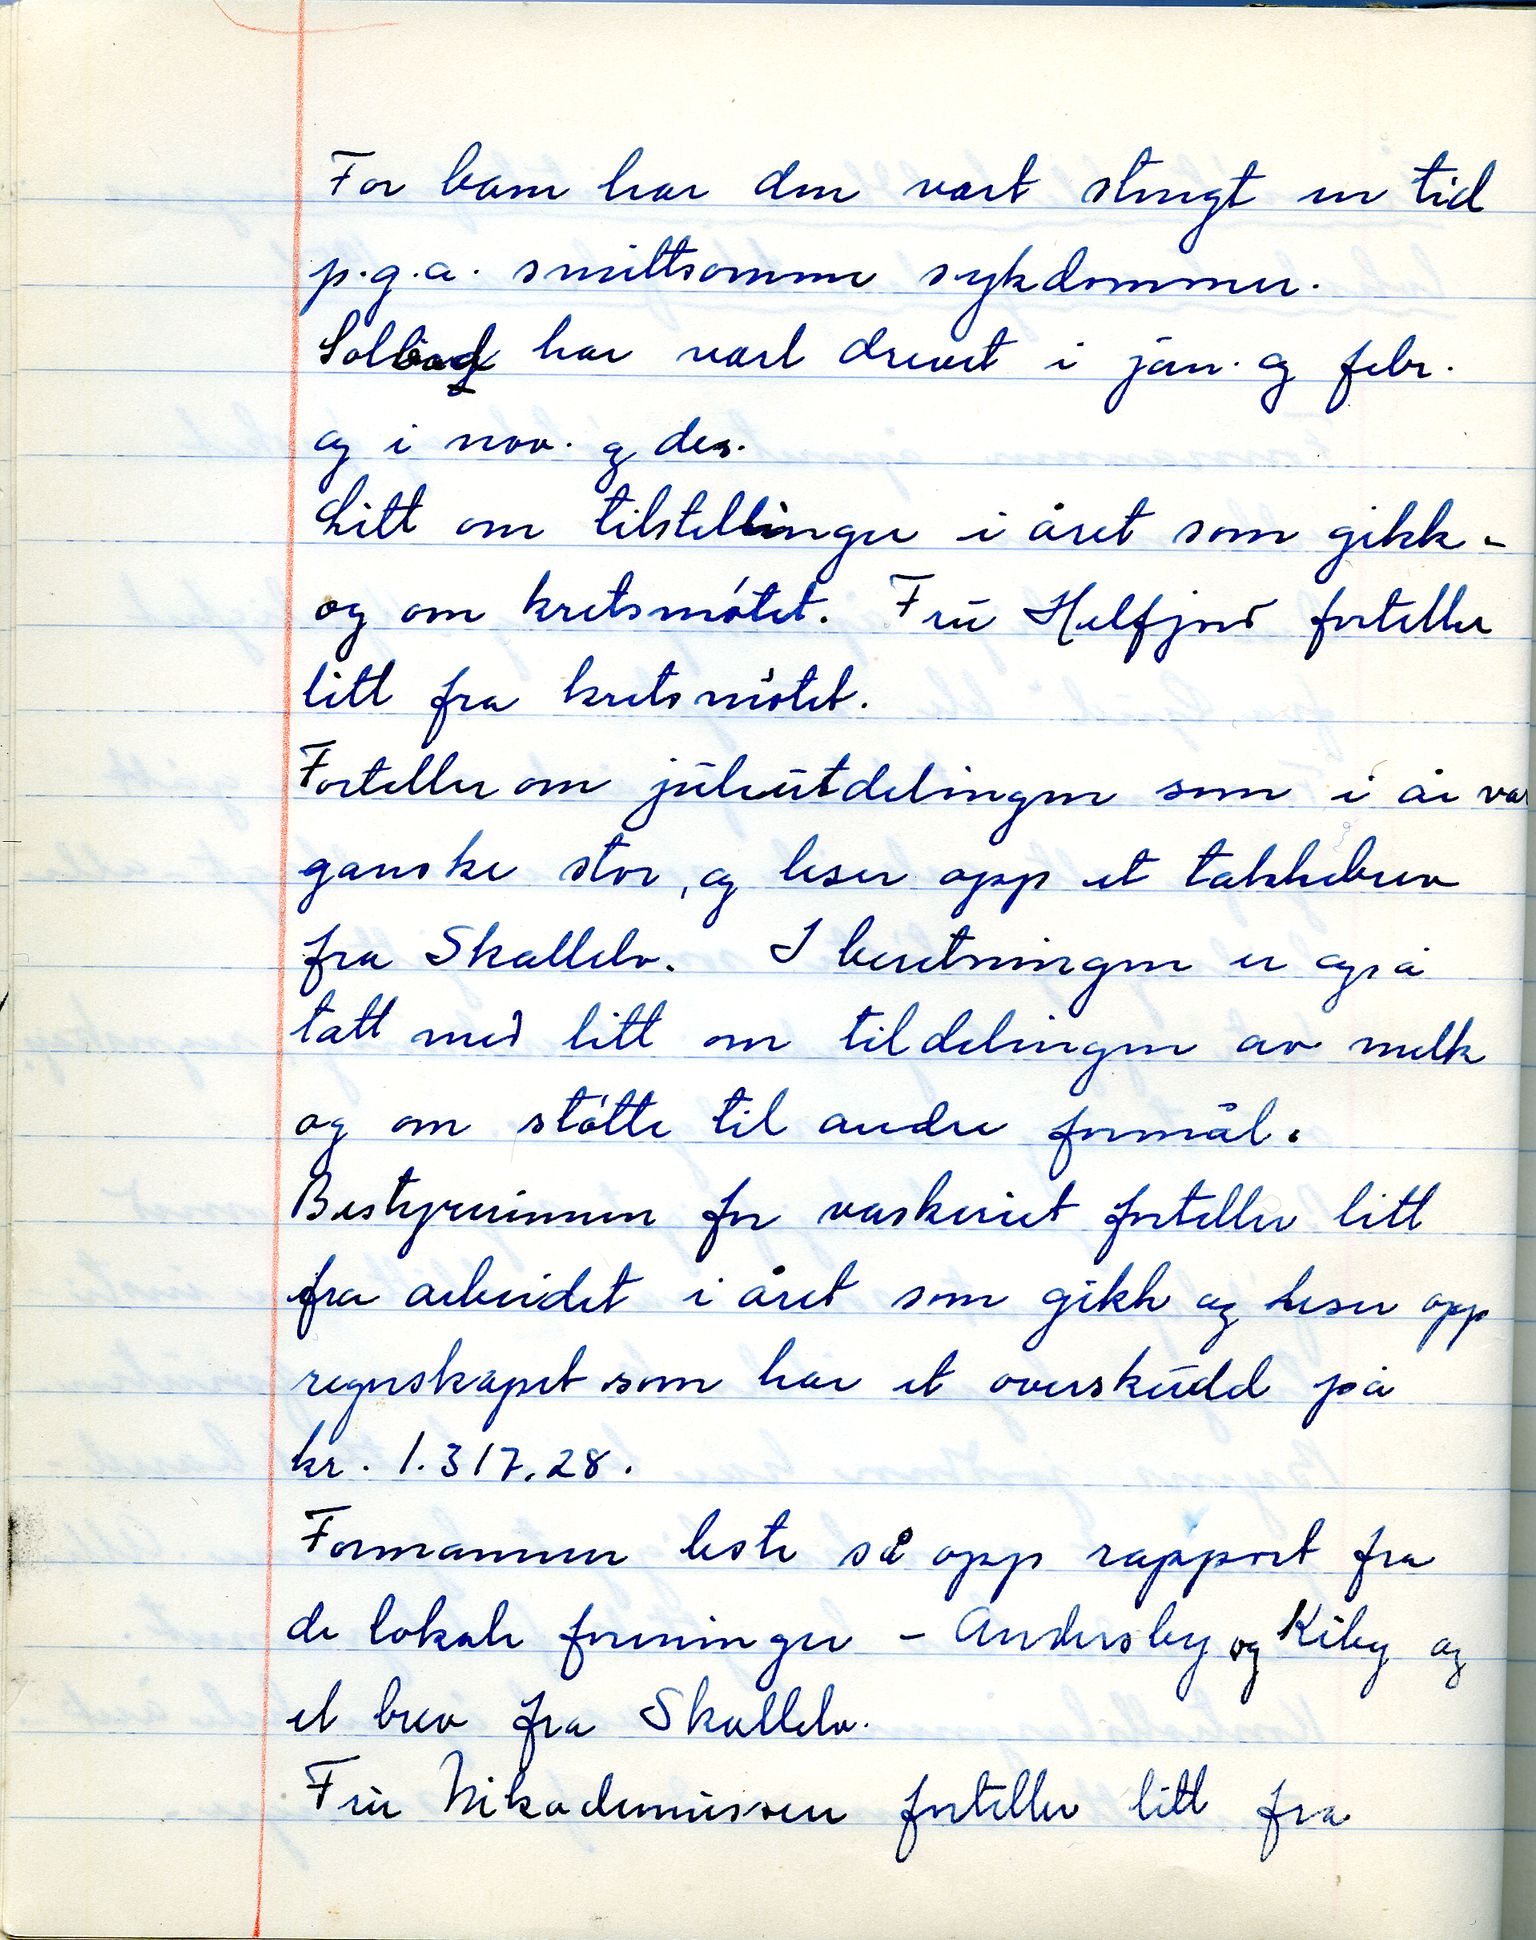 For barn har den vært stengt en tid
p.g.a. smittsomme sykdommer.
Solbad har vært drevet i jan. og febr.
og i nov. og des.
Litt om tilstellinger i året som gikk -
og om kretsmøtet. Fru Helfjord forteller
litt fra kretsmøtet.
Forteller om juleutdelingen som i år var
ganske stor, og leser opp et takkebrev
fra Skallelv. I beretningen er også
tatt med litt om tildelingen av melk
og om støtte til andre formål.
Bestyrerinnen for vaskeriet forteller litt
fra arbeidet i året som gikk og leser opp
regnskapet som har et overskudd på
kr. 1.317.28.
Formannen leste så opp rapport fra
de lokale foreninger - Andersby og Kiby og
et brev fra Skallelv.
Fru Nikodemussen forteller litt fra